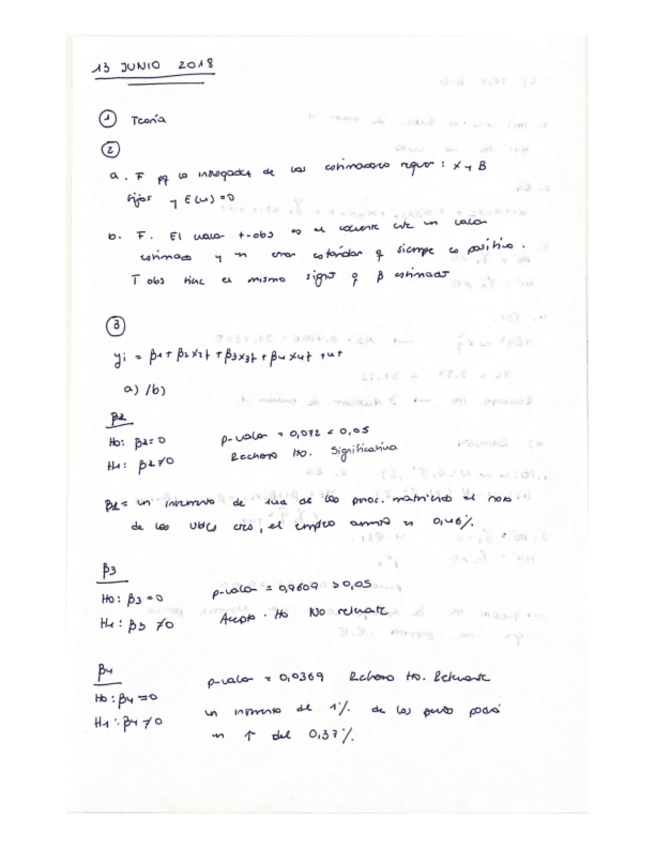 13 JUNIO 2018
① Teoría
②
a. F pq la insesgadez de los estimadores requiere: X y B
fijos y E(u)=0
b. F. El valor t-obs es el cociente entre un valor
estimado y un error estándar q siempre es positivo.
T obs tiene el mismo signo q β estimado
③
yi = β1 + β2x2t + β3x3t + β4x4t + ut
a) /b)
β2
H0: β2=0 p-valor = 0,072 < 0,05
H1: β2≠0 Rechazo H0. Significativa
β2 = un incremento de de los proc. matriciado el
de los , el empleo aumenta n 0,46%.
β3
H0: β3=0 p-valor = 0,9609 > 0,05
H1: β3≠0 Acepto H0 No relevante
β4
H0: β4=0 p-valor = 0,0369 Rechazo H0. Relevante
H1: β4≠0 un incremento del 1% de los
un ↑ del 0,37%.